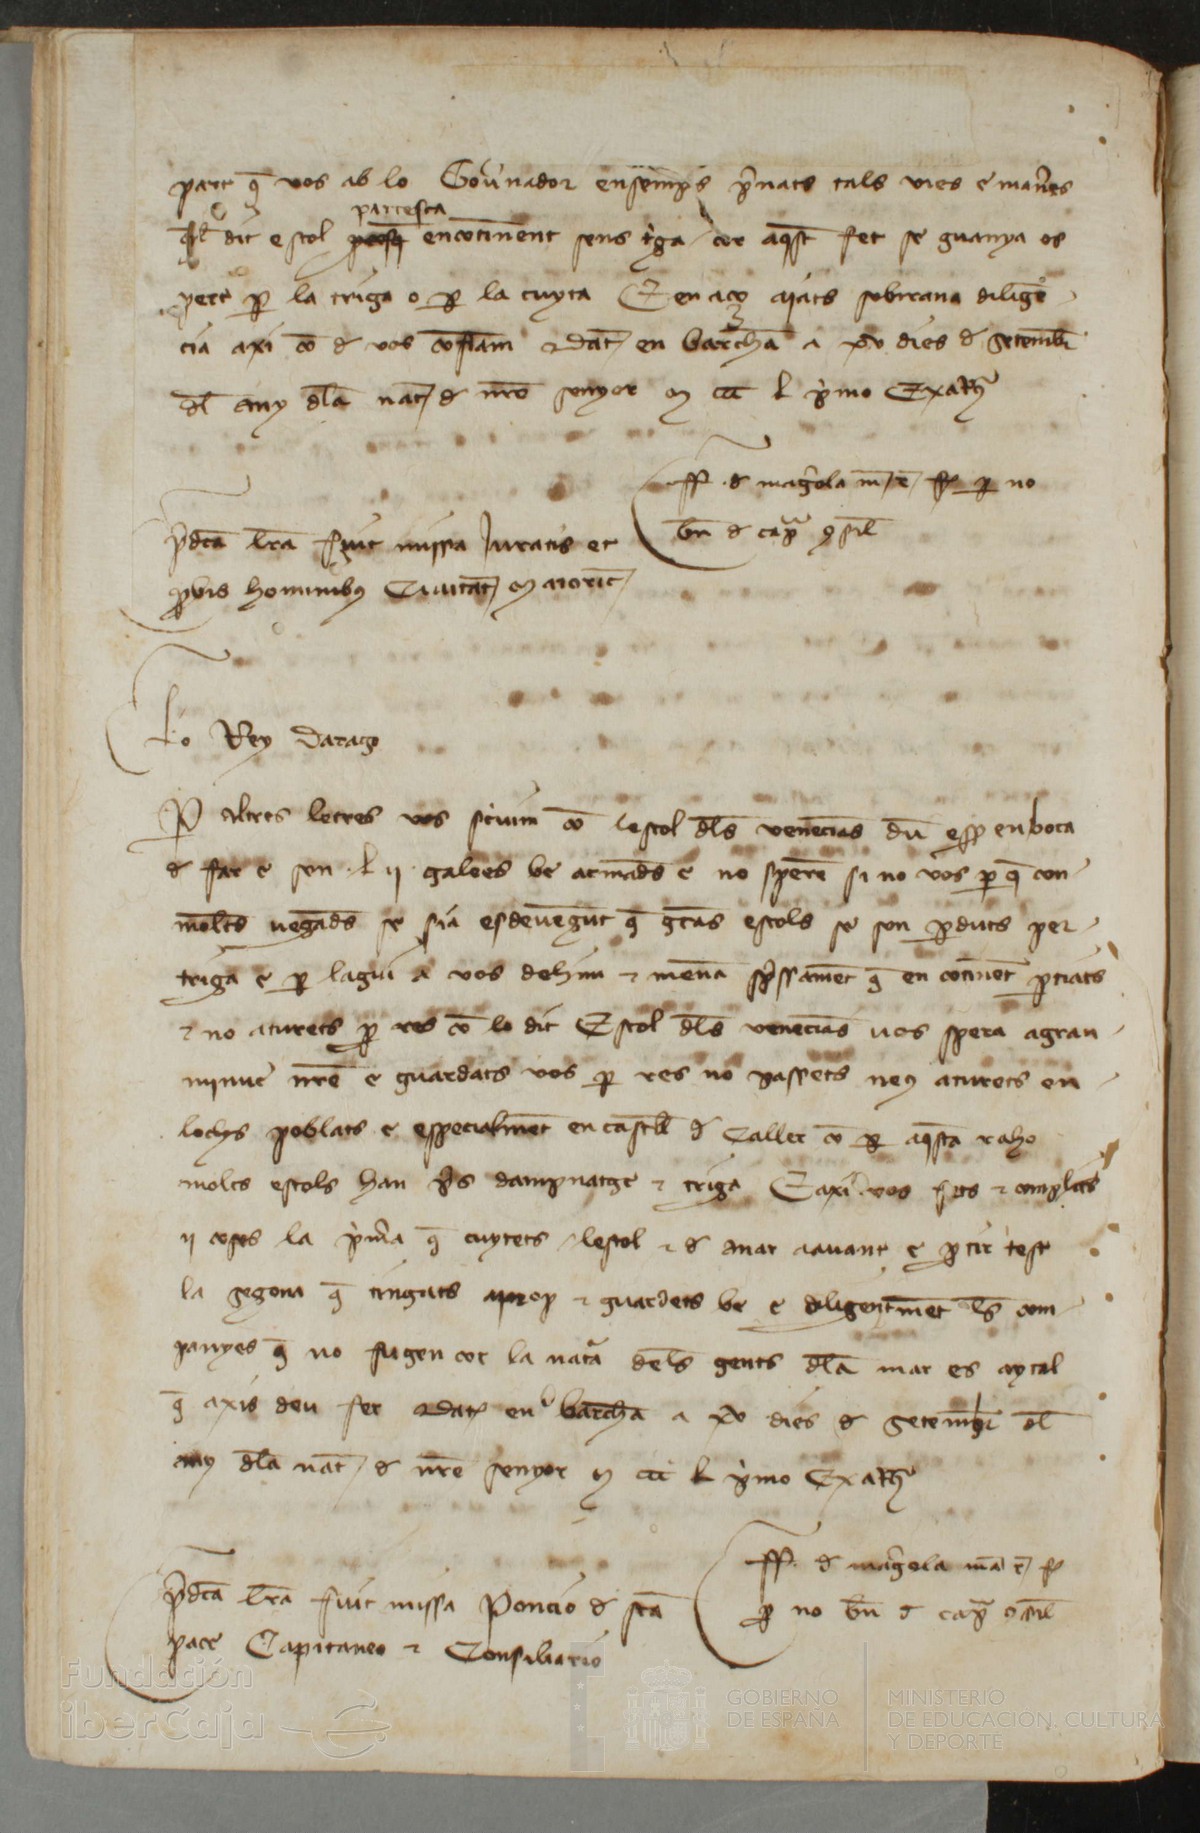 part q̄ vos ab lo Gou̓nador ensemps p̓nats tals vies e man̓es
ql dit estol partesca encōtinent sens t̓ga cor aqst fet se guanya os
pert ꝑ la triga o ꝑ la cuyta E en aço aiats sobirana diligē
cia axi cō d vos cōfiam Dat en barchā a xv dies d Setembr̄
dl any dla nat d nr̄e senyor M ccc L p̓mo Exat
ff d mag̓ola ꝑ no
bn d cap
p̓dca lr̄a fuit missa Juratis et
ꝓbis hominibꝫ Ciuitat Maioric
Lo Rey Darago
P altres letres vos scriuim cō lestol dls venecians en boca
d far e son L ij galees be armads e no speren si no vos ꝑ q̄ con
moltes uegads se sia esdeuēgut q̄ gr̄as estols se son ꝑduts per
triga e ꝑ lagui a vos dehim e manā expssamēt q̄ en cōtinēt ꝑtiats
e no aturets ꝑ res cō lo dit Estol dls venecians uos spera a gran
minue nr̄e e guardats vos ꝑ res no passets neꝫ aturets en
lochs poblats e especialmēt en castell d Caller cō ꝑ aqsta raho
molts estols han p̓s dampnatge e triga E axi vos fets e complits
ij coses la p̓m̓a q̄ cuytets lestol e d anar auant e ꝑtir tost
la segona q̄ tingats aprop e guardets be e diligentmēt les com
panyes q̄ no fugen cor la nat̓a dels gents dla mar es aytal
q̄ axis deu fer Dat en barchā a xv dies d Setembr̄ dl
any dla nat d nr̄e senyor M ccc L p̓mo Exat
ff. d mag̓ola
ꝑ no bn d cap
p̓dca lr̄a fuit missa Poncio d sca
pace Capitaneo e Consiliario
Fundación
iberCaja
GOBIERNO
DE ESPAÑA
MINISTERIO
DE EDUCACIÓN, CULTURA
Y DEPORTE